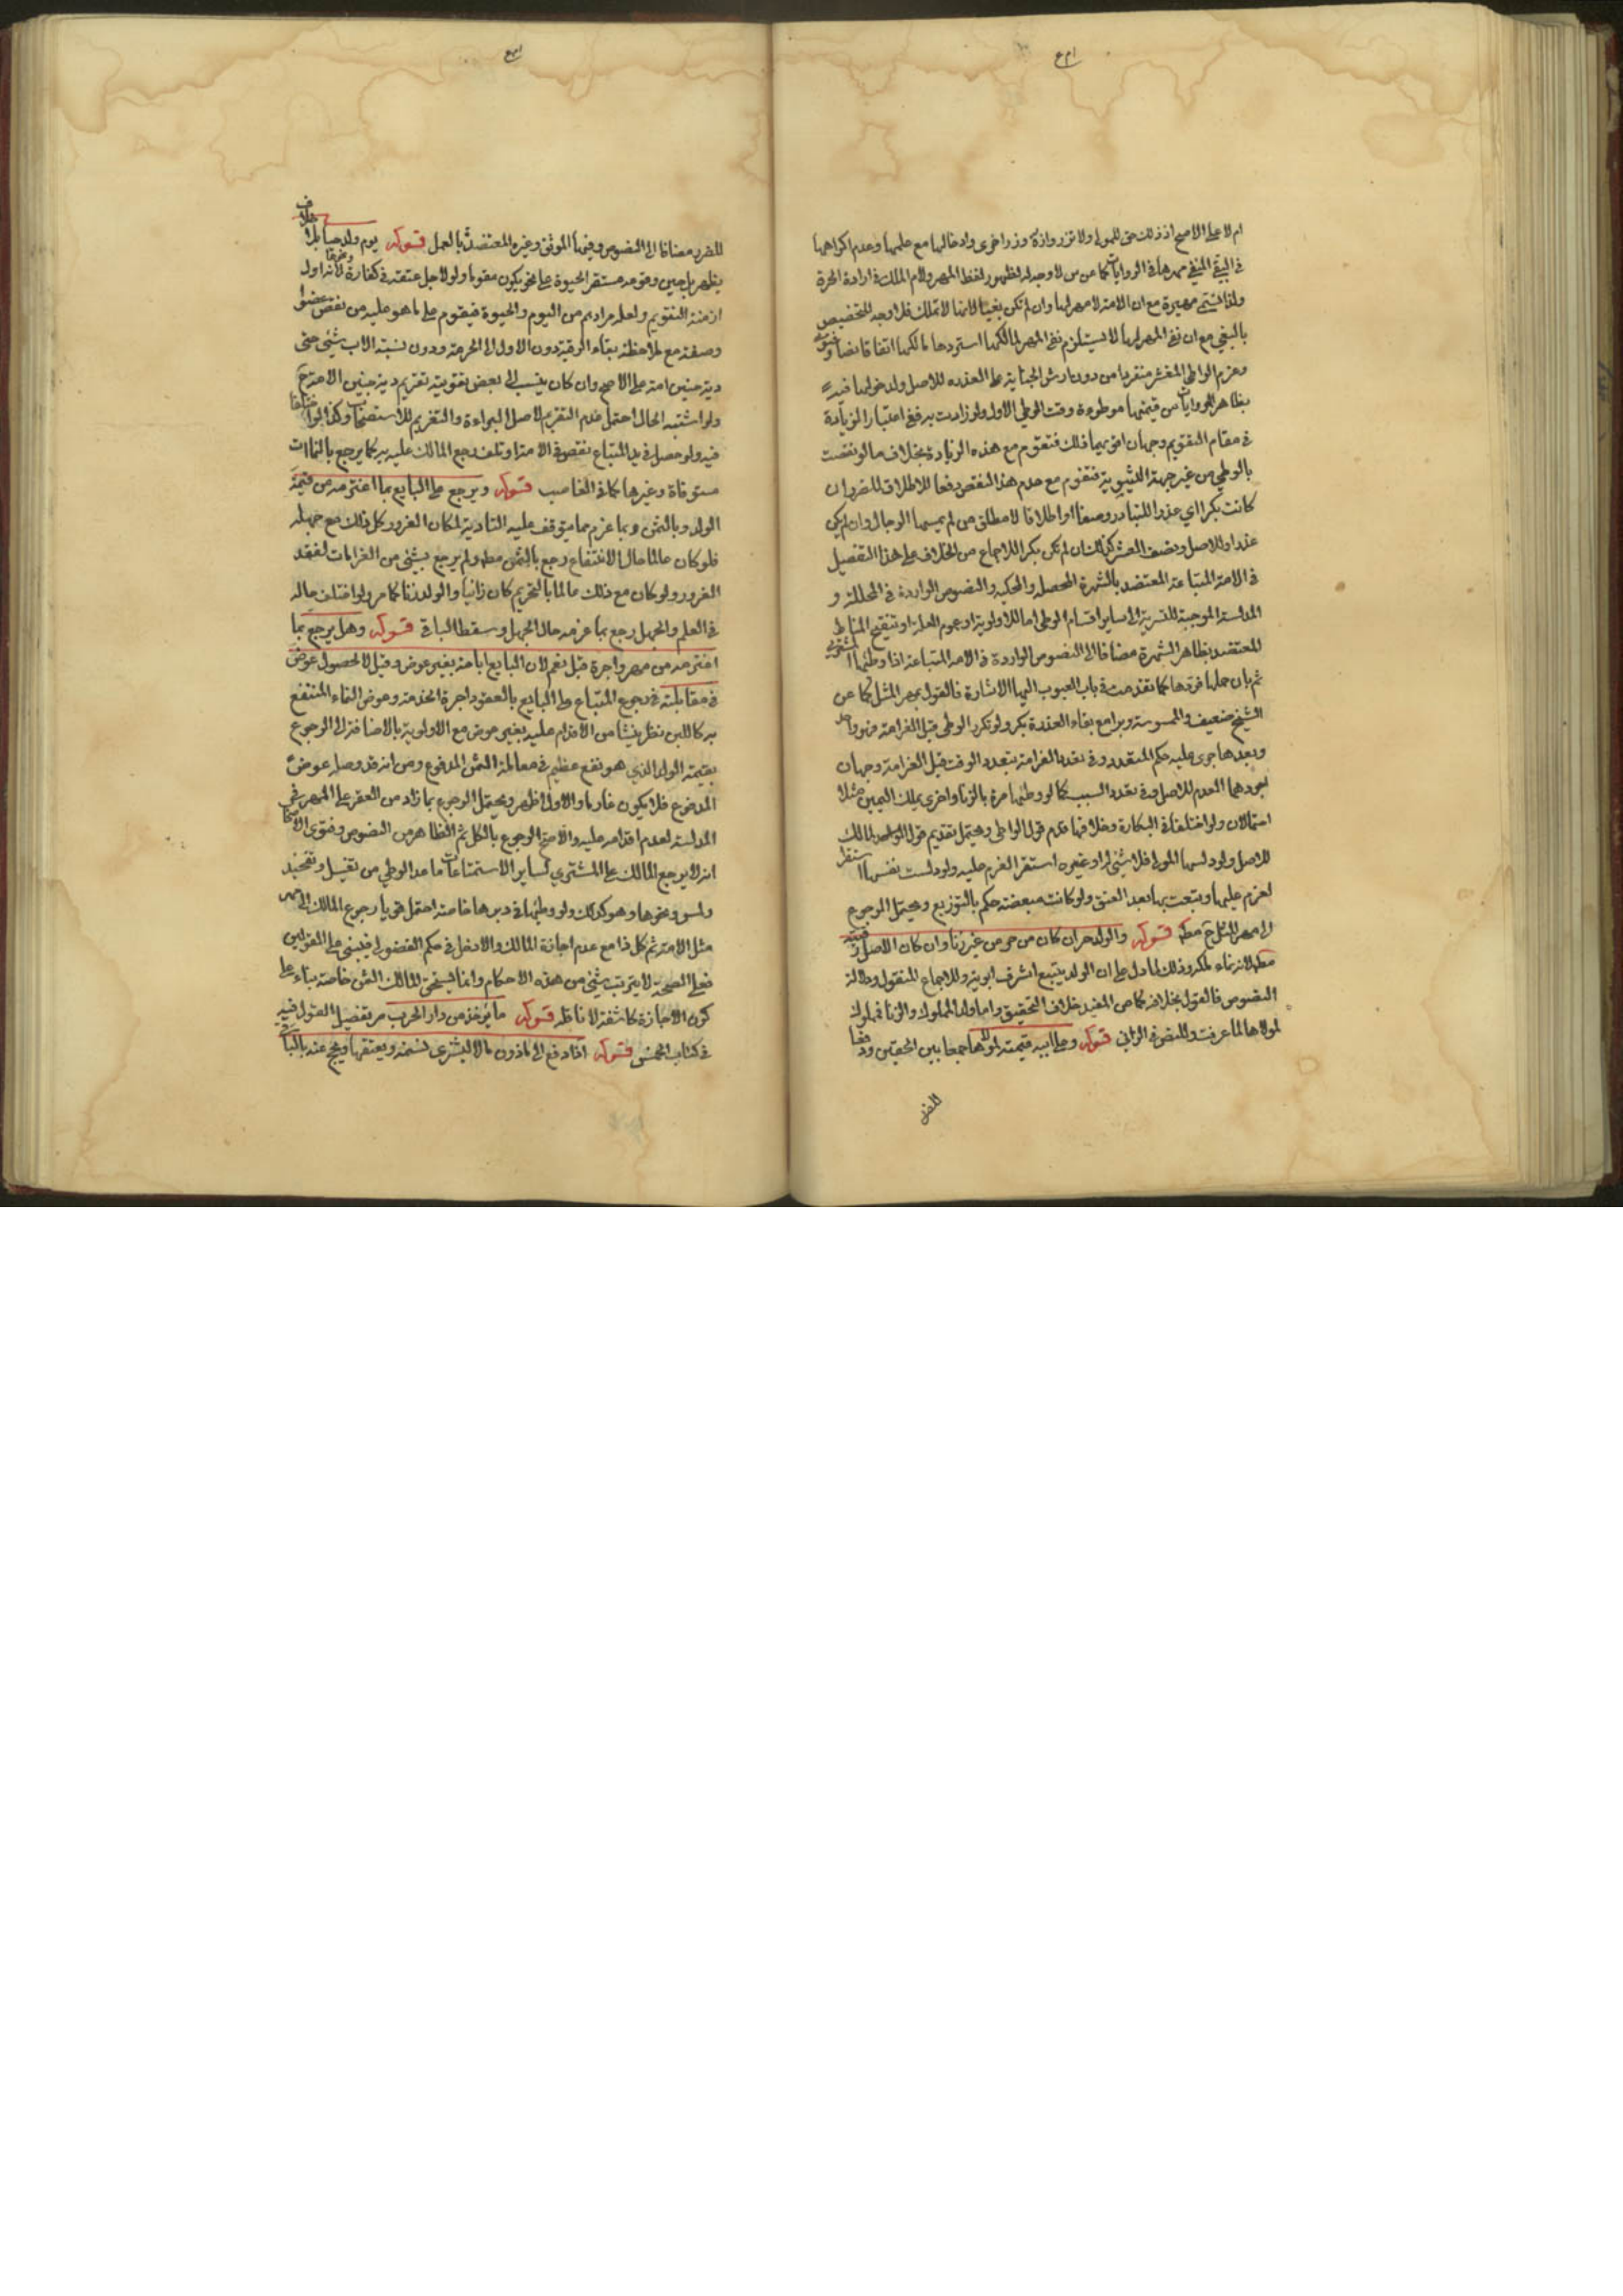 ام لا على الاصح اذ ذلك حق للمولى ولا تزر وازرة وزر اخرى وادخالها مع علمها وعدم اكراهها
في البغي المنفي مهرها في الروايات كما عن س لا وجه له لظهور لفظ المهر ولام الملك في ارادة الحرة
ولذا تسمى مهيرة مع ان الامة لا مهر لها وان لم تكن بغيا لانها لا تملك فلا وجه للتخصيص
بالبغي مع ان نفي المهر لها لا يستلزم نفي المهر لمالكها استردها مالكها اتفاقا نصا وفتوى
وغرم الواطي العشر منفردا من دون ارش الجناية على العذرة للاصل ولدخولها فيه
بظاهر الروايات من قيمتها موطوءة وقت الوطي الاول ولو زادت به ففي اعتبار الزيادة
في مقام التقويم وجهان اقويهما ذلك فتقوم مع هذه الزيادة بخلاف ما لو نقصت
بالوطي من غير جهة الثيبوبة فتقوم مع عدم هذا النقص دفعا للاطلاق للضرر ان
كانت بكرا اي عذراء للتبادر وصفا او اطلاقا لا مطلق من لم يمسها الرجال وان لم يكن
عذراء وللاصل ونصف العشر كذلك ان لم تكن بكرا للاجماع من الخلاف على هذا التفصيل
في الامة المبتاعة المعتضد بالشهرة المحصلة والمحكية والنصوص الواردة في المحللة و
المدلسة الموجبة للتسرية الى ساير اقسام الوطي اما للاولوية او عموم العلة او تنقيح المناط
المعتضد بظاهر الشهرة مضافا الى النصوص الواردة في الامة المبتاعة اذا وطئها المشتري
ثم بان حملها فردها كما تقدمت في باب العيوب اليها الاشارة فالقول بمهر المثل كما عن
الشيخ ضعيف والممسوسة وبرا مع بقاء العذرة بكر ولو تكرر الوطي قبل الغرامة فهو واحد
وبعدها جرى عليه حكم المتعدد وفي تعدد الغرامة بتعدد الوقت قبل الغرامة وجهان
اجودهما العدم للاصل وفي تعدد السبب كما لو وطئها مرة بالزنا واخرى بملك اليمين مثلا
احتمالان ولو اختلفا في البكارة وخلافها قدم قول الواطي ويحتمل تقديم قول المالك
للاصل ولو دلسها المولى فلا شيء له او غيره استقر الغرم عليه ولو دلست نفسها استقر
الغرم عليها وتتبعت بها بعد العتق ولو كانت مبعضة حكم بالتوزيع ويحتمل الرجوع
الى مهر النكاح مطلقا قوله والولد حر ان كان من حر من غير زنا وان كان الاصل فيه
مطلقا لانه نماء لمكروه ذلك لما دل على ان الولد يتبع اشرف ابويه وللاجماع المنقول ودلالة
النصوص فالقول بخلافه كما عن المفيد خلاف التحقيق واما ولد المملوك والزنا فمملوك
لمولاها لما عرفت وللنص في الزاني قوله وعلى ابيه قيمته لمولاها جمعا بين الحقين ودفعا
للضرر
للضرر مضافا الى النصوص وفيها الموثق وغيره المعتضدة بالعمل قوله يوم ولد حيا بلا خلاف
يظهر بل حين وقوعه مستقر الحيوة على نحو يكون مقوما ولو لاجل عتقه في كفارة ونحوها لانه اول
ازمنة التقويم ولعله مرادهم من اليوم والحيوة فيقوم على ما هو عليه من نقص عضو او
وصفة مع ملاحظة بقاء الرقية دون الاول الى الحرمة ودون نسبته الاب شيء حتى
دية جنين امة على الاصح وان كان ينسب الى بعض تقويته تغريم دية جنين الامة ح
ولو اشتبه الحال احتمل عدم التغريم لاصل البراءة والتغريم للاستصحاب وكذا لو اختلفا
فيه ولو حصل في يد المبتاع نقص في الامة او تلف رجع المالك عليه به كما يرجع بالنماءات
مستوفاة وغيرها كما في الغاصب قوله ويرجع على البايع بما اغترمه من قيمة
الولد وبالثمن وبما غرم مما يتوقف عليه التادية لمكان الغرور كل ذلك مع جهله
فلو كان عالما حال الانتفاع رجع بالثمن مطلقا ولم يرجع بشيء من الغرامات لفقد
الغرور ولو كان مع ذلك عالما بالتحريم كان زانيا والولد زنا كما مر ولو اختلف حاله
في العلم والجهل رجع بما غرمه حال الجهل وسقط الباقي قوله وهل يرجع بما
اغترمه من مهر واجرة قيل نعم لان البايع اباحه بغير عوض وقيل لا لحصول عوض
في مقابلته في رجوع المبتاع على البايع بالعقر واجرة الخدمة وعوض النماء المنتفع
به كاللبن نظر ينشا من الاقدام عليه بغير عوض مع الاولوية بالاضافة الى الرجوع
بقيمة الولد الذي هو نفع عظيم في معاملة الثمن المدفوع ومن انه قد وصله عوض
المدفوع فلا يكون غارما والاول اظهر ويحتمل الرجوع بما زاد من العقر على المهر في
المدلسة لعدم اقدامه عليه والاصح الرجوع بالكل ثم الظاهر من النصوص وفتوى الاصحاب
انه لا يرجع المالك على المشتري لساير الاستمتاعات ما عدا الوطي من تقبيل وتفخيذ
ولمس ونحوها وهو كذلك ولو وطئها في دبرها خاصة احتمل قويا رجوع المالك الى مهر
مثل الامة ثم كل ذا مع عدم اجازة المالك والا دخل في حكم الفضولي فيبنى على القولين
فعلى الصحة لا يترتب شيء من هذه الاحكام وانما يستحق المالك الثمن خاصة بناء على
كون الاجازة كاشفة لا ناقلة قوله ما يؤخذ من دار الحرب مر تفصيل القول فيه
في كتاب الخمس قوله اذا دفع الى ماذون مالا ليشترى نسمة ويعتقها ويحج عنه بالباقي